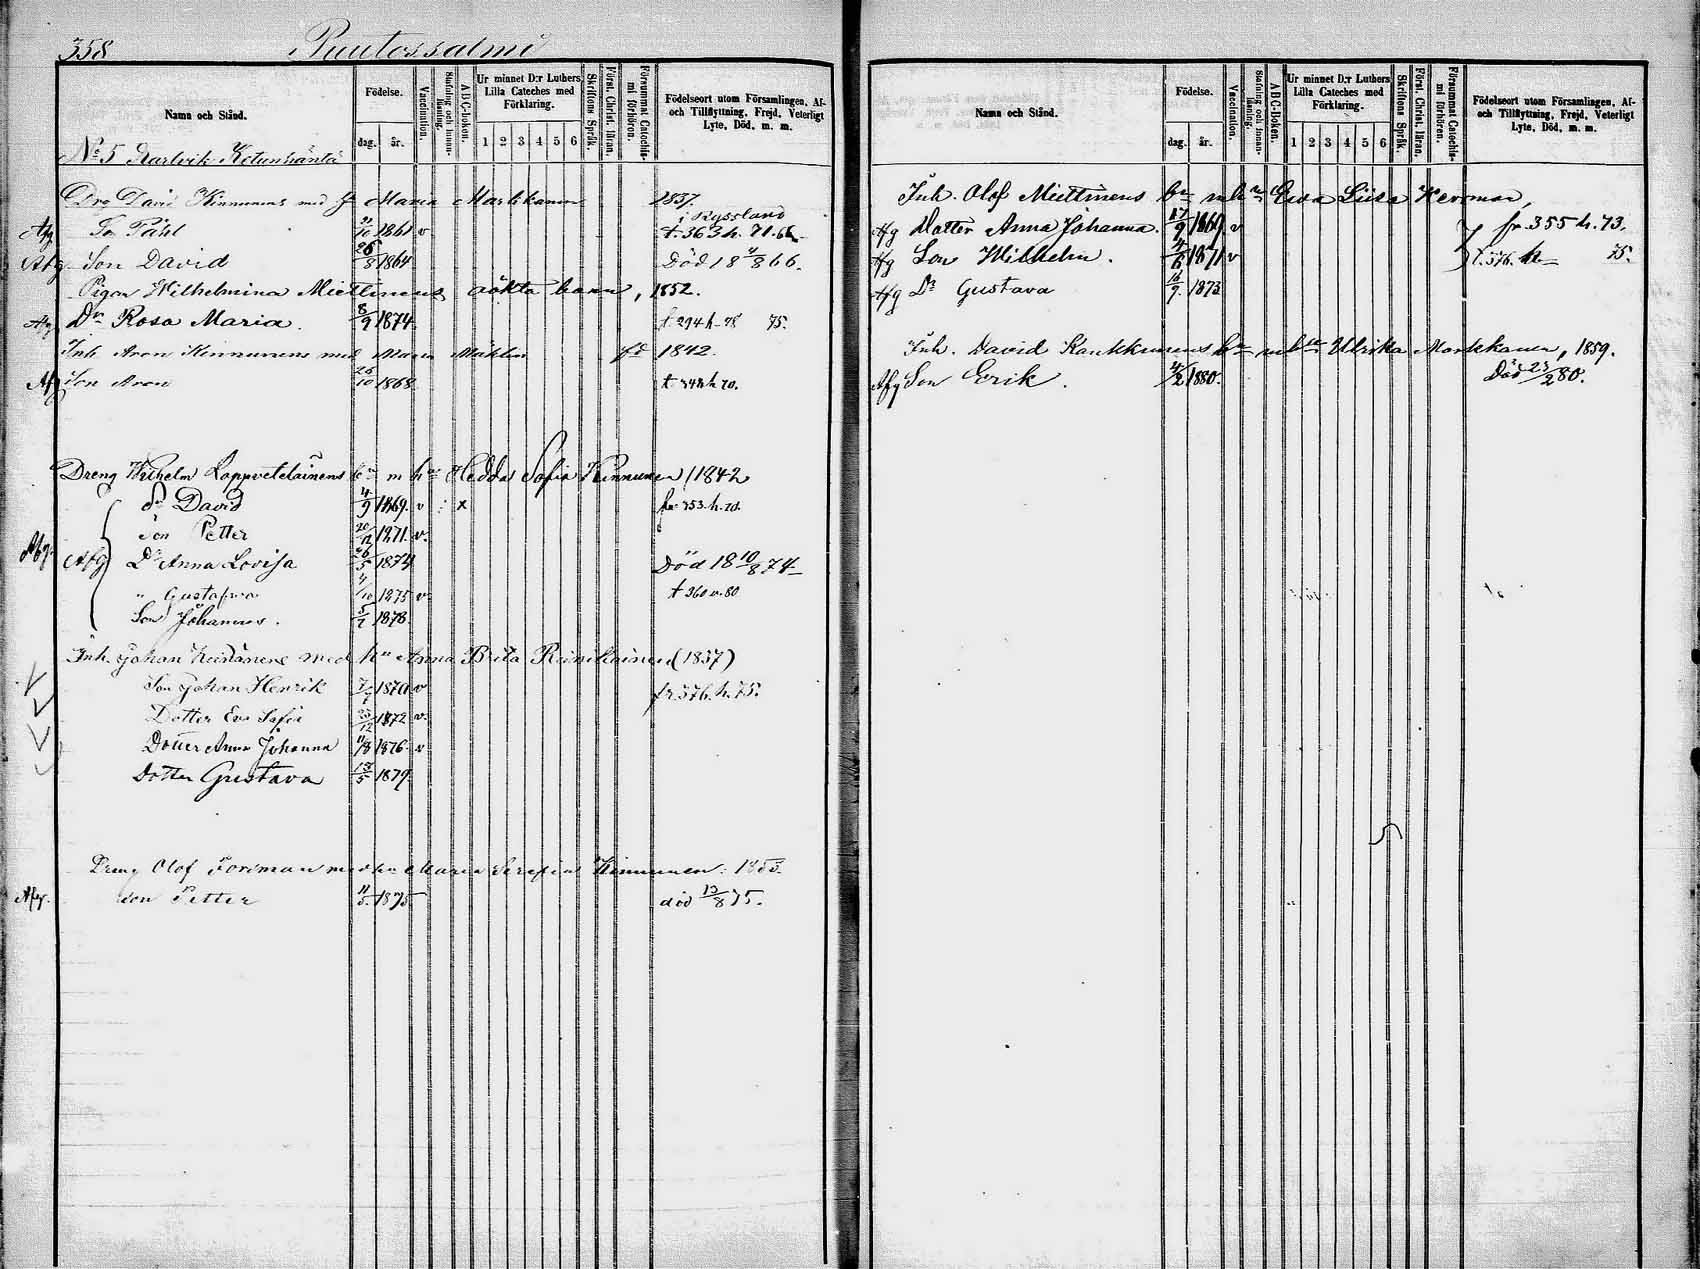 358 Puutossalmi
Namn och Stånd.
Födelse.
dag.
år.
Vaccination.
Stafning och innanläsning.
A B C-boken.
Ur minnet D:r Luthers Lilla Cateches med Förklaring.
1 2 3 4 5 6
Skriftens Språk.
Först. Christ. läran.
Försummat Catechismi förhören.
Födelseort utom Församlingen, Af- och Tillflyttning, Frejd, Veterligt Lyte, Död, m. m.
No 5 Kartvik Ketunranta
Drg David Kinnunens med Maria Markkanen 1837.
i Ryssland
Afg Son Påhl 21/10 1861 v t. 363 h. 71.
Afg Son David 26/8 1864 Död 18 4/8 66.
Pigan Wilhelmina Miettinens oäkta barn, 1852.
Afg Dr Rosa Maria. 8/9 1874 t. 294 h. 75.
Inh. Aron Kinnunens med Maria fd 1842.
Afg Son Aron 26/10 1868 t h. 70.
Dreng Wilhelm Lappvetelainens bn m hu Hedda Sofia Kinnunen (1842
Sn David 4/9 1869. v x fr 353. h. 70.
Son Petter 20/12 1871. v.
Afg. Afg Dr Anna Lovisa 26/5 1874 Död 18 10/8 74
" Gustafva 4/10 1875 v t 360 v. 80
Son Johannes. 5/7 1878.
Inh. Johan med hu Anna Brita Reinikainen (1837)
Son Johan Henrik 1870 v fr 376. h. 75.
Dotter Eva Sofia 23/12 1872 v.
Dotter Anna Johanna 11/8 1876 v
Dotter Gustava 13/5 1879.
Dreng Olof Forsman med hu Maria Serafia Kinnunen. 1853.
Afg. Son Petter 11/5 1875 död 13/8 75.
Namn och Stånd.
Födelse.
dag.
år.
Vaccination.
Stafning och innanläsning.
A B C-boken.
Ur minnet D:r Luthers Lilla Cateches med Förklaring.
1 2 3 4 5 6
Skriftens Språk.
Först. Christ. läran.
Försummat Catechismi förhören.
Födelseort utom Församlingen, Af- och Tillflyttning, Frejd, Veterligt Lyte, Död, m. m.
Inh. Olof Miettinens bn mhu Eva Liisa Kerman,
Afg Dotter Anna Johanna. 17/9 1869. v fr. 355 h. 73.
Afg Son Wilhelm. 4/6 1871 v t. 376. h 75.
Afg Dr Gustava 1873
Inh. David Kaukkunens bn mhu Ulrika Markkanen, 1859.
Afg Son Erik. 4/2 1880. Död 23/2 80.